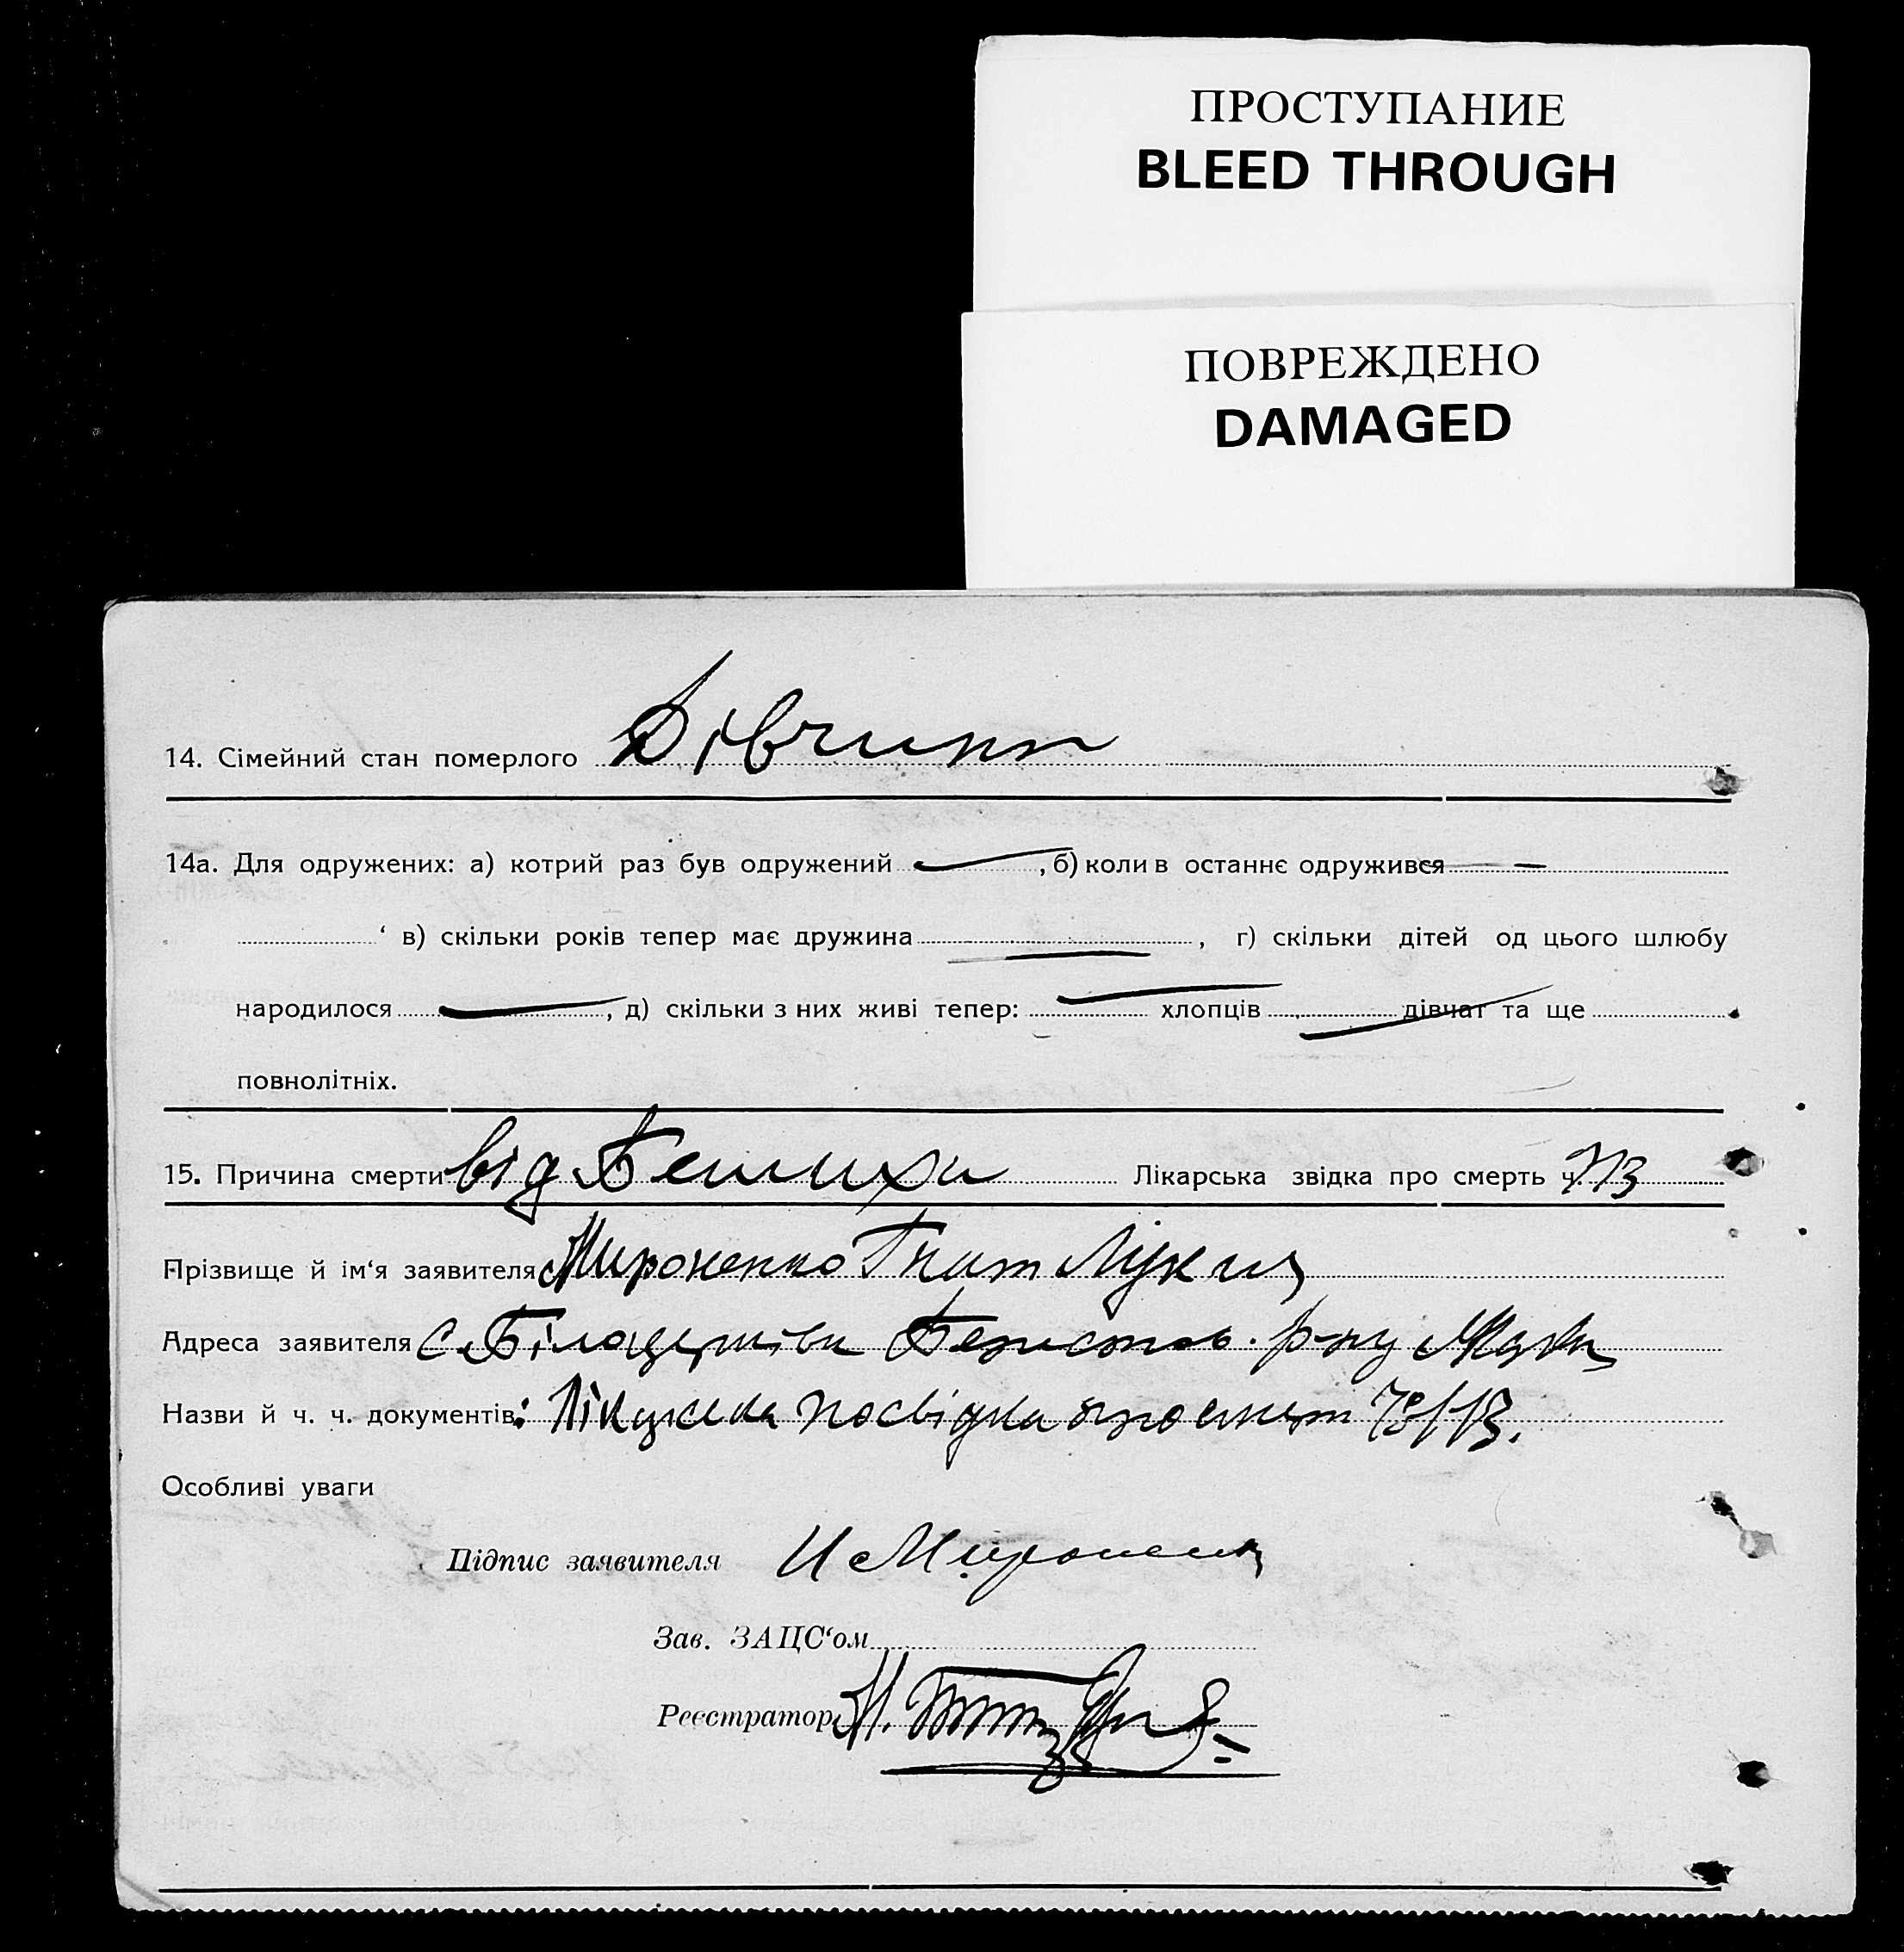 ПРОСТУПАНИЕ
BLEED THROUGH
ПОВРЕЖДЕНО
DAMAGED
14. Сімейний стан померлого Дівчина
14а. Для одружених: а) котрий раз був одружений , б) коли в останнє одружився —
‘ в) скільки років тепер має дружина , г) скільки дітей од цього шлюбу
народилося , д) скільки з них живі тепер: хлопців дівчат та ще .
повнолітніх.
15. Причина смерти від Бешихи Лікарська звідка про смерть ч.
Прізвище й ім‘я заявителя Мироненко Гнат
Адреса заявителя с. р-ну
Назви й ч. ч. документів: посвідка про
Особливі уваги
Підпис заявителя
Зав. ЗАЦС‘ом
Реєстратор